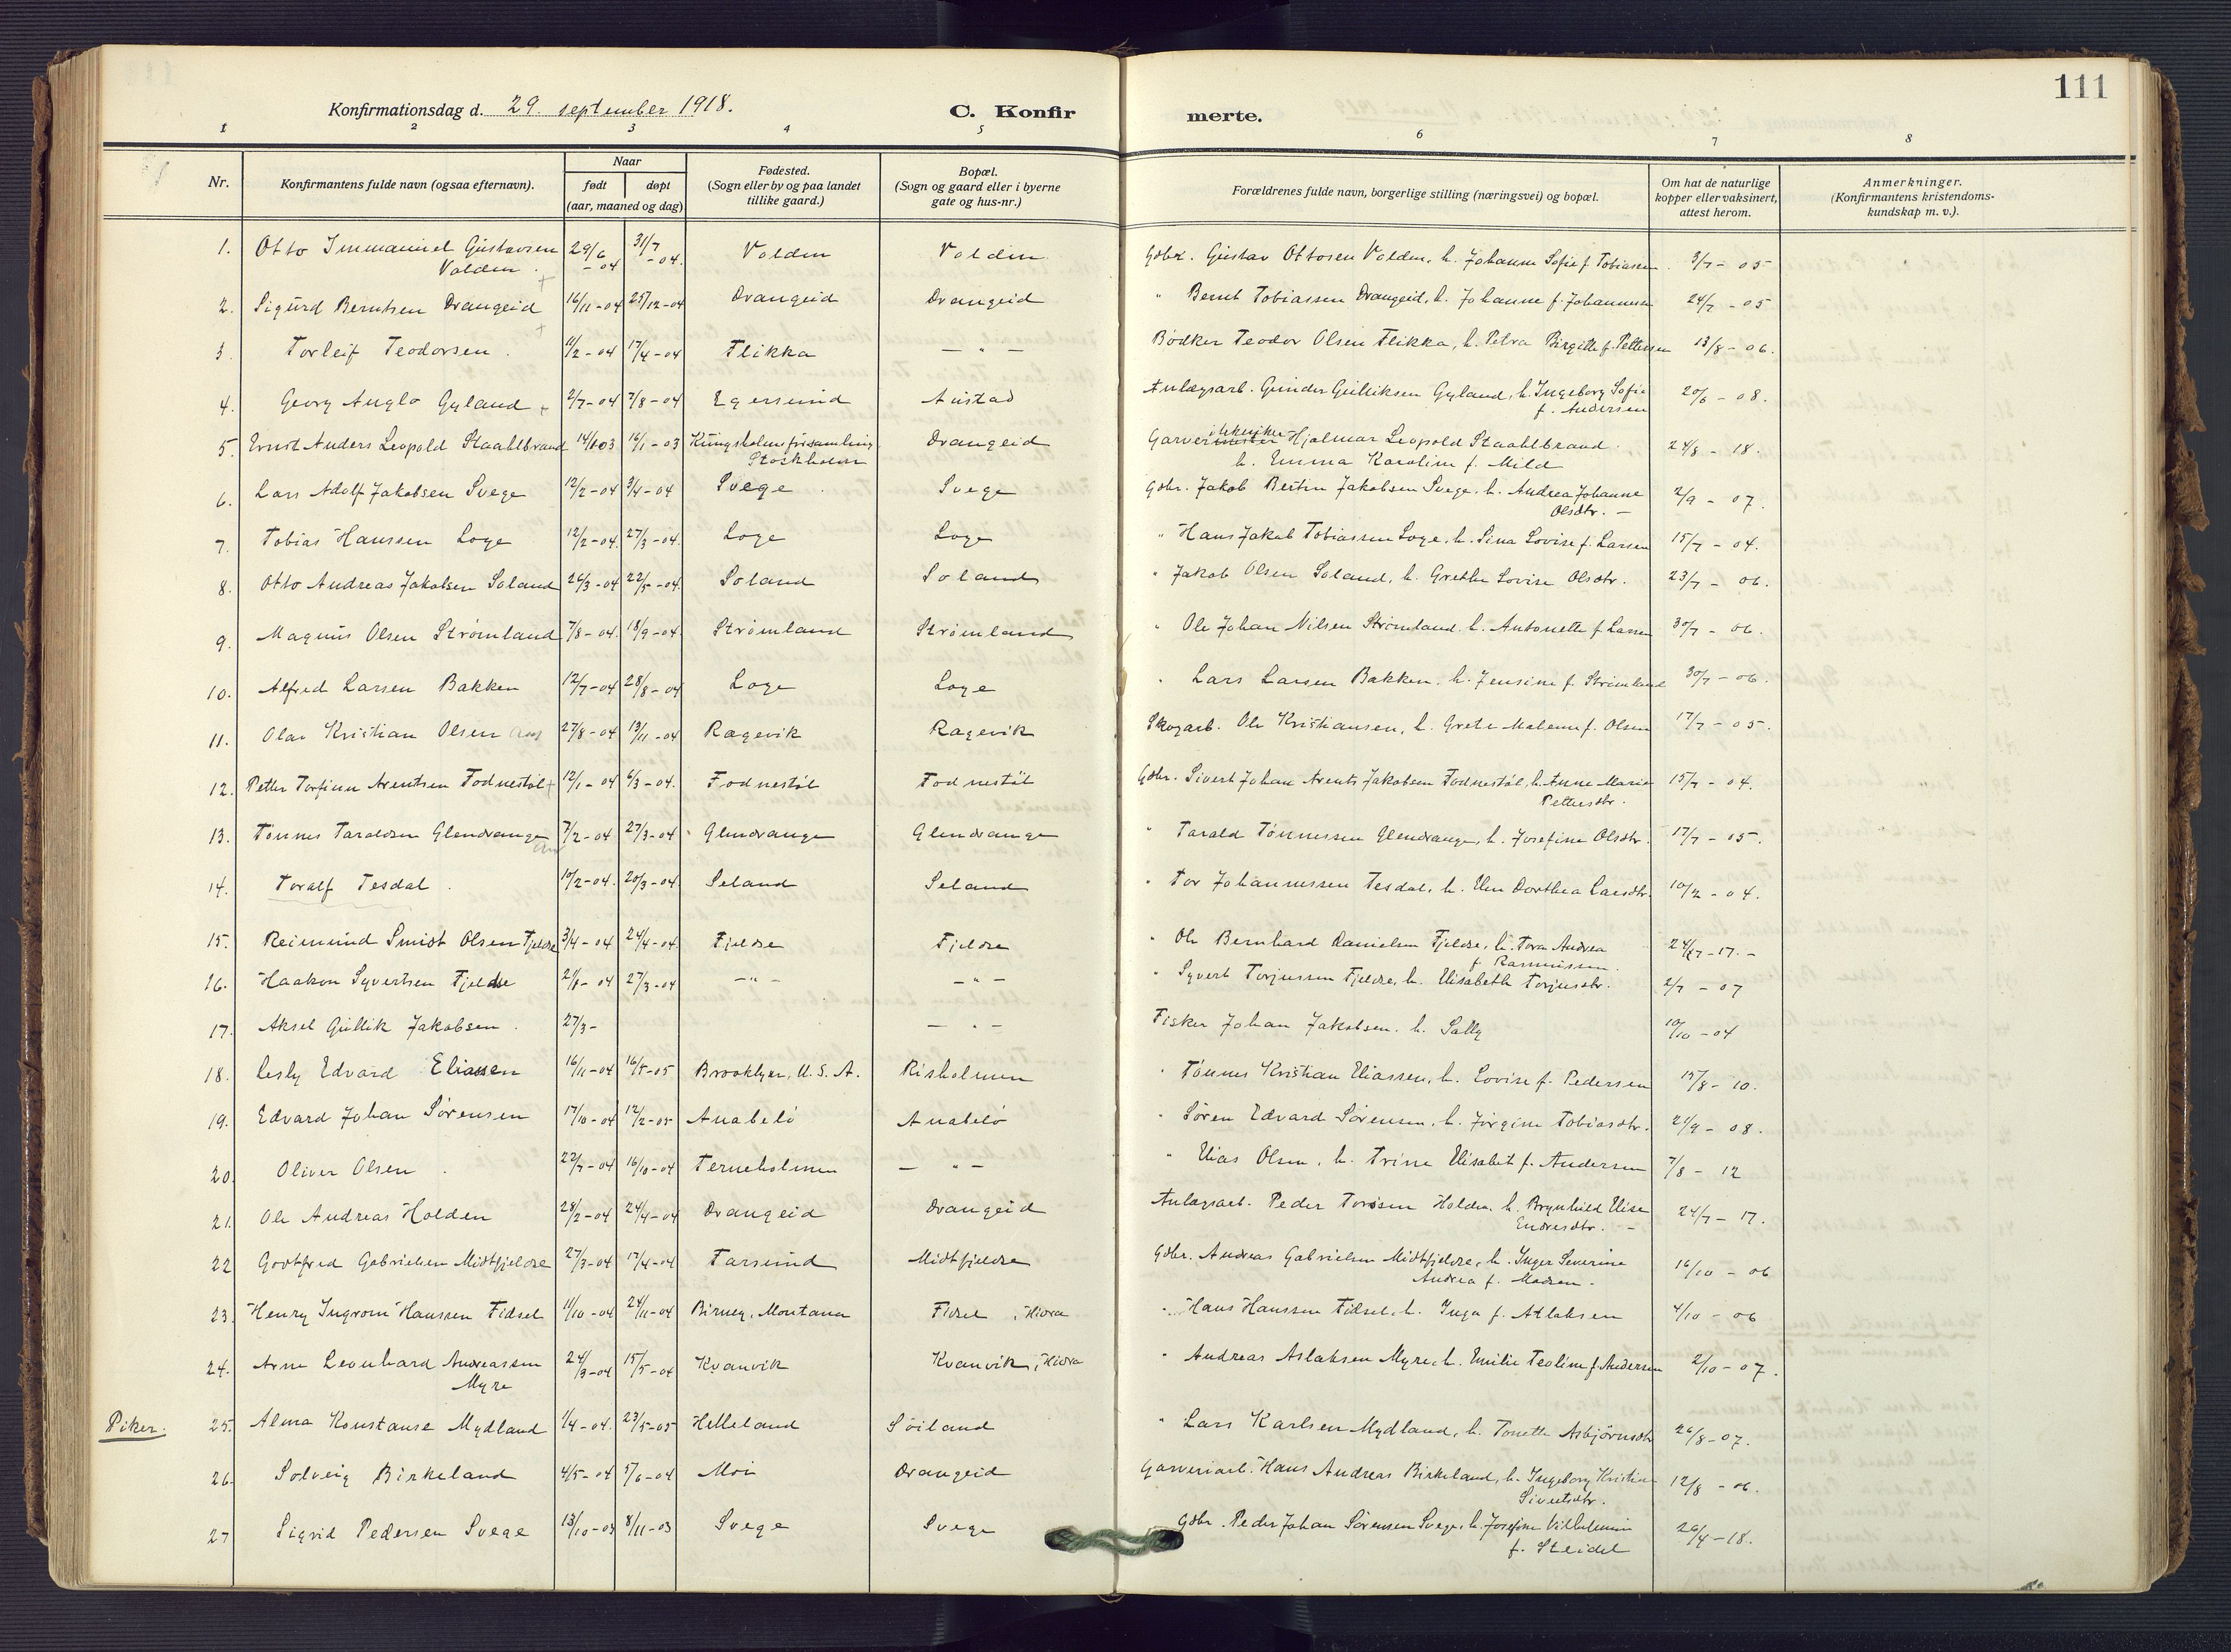 111
Konfirmationsdag d. 29 september 1918. C. Konfirmerte.
1 2 3 4 5 6 7 8
Nr. Konfirmantens fulde navn (ogsaa efternavn). Naar født døpt (aar, maaned og dag) Fødested. (Sogn eller by og paa landet tillike gaard.) Bopæl. (Sogn og gaard eller i byerne gate og hus-nr.) Forældrenes fulde navn, borgerlige stilling (næringsvei) og bopæl. Om hat de naturlige kopper eller vaksinert, attest herom. Anmerkninger. (Konfirmantens kristendoms-kundskap m. v.).
1. Otto Immanuel Gustavsen Valden. 29/6 -04 31/7 -04. Valden Valden Gdbr. Gustav Ottosen Valden, h. Johanne Sofie f. Tobiassen. 3/7 - 05
2. Sigurd Berntsen Drangeid 16/11-04 25/12-04 Drangeid Drangeid " Bernt Tobiassen Drangeid, h. Johanne f. Johannesen 24/7 - 05
3. Torleif Teodorsen. 11/2-04 17/4-04 Flikka — " — Bødker Teodor Olsen Flikka, h. Petra Birgitte f. Pettersen 13/8 - 06.
4. Georg Anglo Gyland + 2/7-04 7/8-04 Egersund Austad Anlægsarb. Gunder Gulliksen Gyland, h. Ingeborg Sofie f. Andersen 20/6 - 08.
5. Ernst Anders Leopold Staahlbrand 14/1 03 16/1-03 Kungsholms församling Stockholm Drangeid Garver tekniker Hjalmar Leopold Staahlbrand. h. Emma Karolina f. Mild 24/8 - 18.
6. Lars Adolf Jakobsen Svege 12/2-04 3/4-04 Svege Svege Gdbr. Jakob Bertin Jakobsen Svege. h. Andrea Johanne Olsdtr. — 2/9 - 07.
7. Tobias Hanssen Loge 12/2-04. 27/3-04. Loge Loge " Hans Jakob Tobiassen Loge, h. Sina Lovise f. Larsen 15/7 - 04.
8. Otto Andreas Jakobsen Soland 26/3-04 22/5-04. Soland Soland " Jakob Olsen Soland, h. Grethe Lovise Olsdtr. 23/7 - 06.
9. Magnus Olsen Strømland 7/8-04. 18/9-04. Strømland Strømland " Ole Johan Nilsen Strømland. h. Antonette f. Larsen 30/7 - 06.
10. Alfred Larsen Bakken 12/7-04 28/8-04 Loge Loge " Lars Larsen Bakken. h. Jensine f. Strømland 30/7 - 06.
11. Olav Kristian Olsen 27/8-04 13/11-04 Ragevik Ragevik Skogarb. Ole Kristiansen, h. Grete Malene f. Olsen 17/7 - 05.
12. Petter Torfinn Arentsen Fodnestøl + 12/1-04 6/3-04. Fodnestøl Fodnestøl Gdbr. Sivert Johan Arents Jakobsen Fodnestøl, h. Anne Marie Pettersdtr. 15/7 - 04.
13. Tønnes Taraldsen Glendrange 7/2-04 27/3-04 Glendrange Glendrange " Tarald Tønnessen Glendrange, h. Josefine Olsdtr. 17/7 - 05.
14. Toralf Tesdal. 10/2-04. 20/3-04. Seland Seland " Tor Johannessen Tesdal, h. Elen Dorthea Larsdtr. 10/2 - 04.
15. Reimund Smidt Olsen Fjeldse 3/4-04 24/4-04. Fjeldse Fjeldse " Ole Bernhard Danielsen Fjeldse, h. Tora Andrea f. Rasmussen. 24/7-17.-
16. Haakon Syvertsen Fjeldse 21/1-04 27/3-04 — " — — " — " Syvert Torjussen Fjeldse, h. Elisabeth Torjusdtr. 2/7 - 07
17. Aksel Gullik Jakobsen. 27/3- — " — Fisker Johan Jakobsen. h. Sally 10/10 - 04
18. Lesly Edvard Eliassen 16/11-04 16/5-05 Brooklyn, U.S.A. Risholmen " Tønnes Kristian Eliassen, h. Lovise f. Pedersen 15/8 - 10.
19. Edvard Johan Sørensen 17/10-04 12/2-05 Anabelø Anabelø " Søren Edvard Sørensen. h. Jørgine Tobiasdtr. 21/9 - 08.
20. Oliver Olsen. 22/7-04 16/10-04 Terneholmen — " — " Elias Olsen, h. Trine Elisabet f. Andersen 7/8 - 12
21. Ole Andreas Holden 28/2-04 24/4-04 Drangeid Drangeid Anlægsarb. Peder Torssen Holden. h. Brynhild Elise Endresdtr. — 24/7 - 17.
22 Godtfred Gabrielsen Midtfjeldse 27/3-04 17/4-04 Farsund Midtfjeldse Gdbr. Andreas Gabrielsen Midtfjeldse, h. Inger Severine Andrea f. Madsen. 16/10 - 06
23. Henry Ingrom Hanssen Fidsel 11/10-04 24/11-04 Birney, Montana Fidsel, Hidra " Hans Hanssen Fidsel, h. Inga f. Atlaksen 4/10 - 06
24. Arne Leonhard Andreassen Myre 24/3-04 15/5-04 Kvanvik Kvanvik, Hidra " Andreas Aslaksen Myre, h. Emilie Teoline f. Andersen 2/10 - 07.
Piker. 25. Alma Konstanse Mydland 1/4-04. 23/5-05 Helleland Søiland " Lars Karlsen Mydland, h. Tonette Asbjørnsdtr 26/8-07.
26. Solveig Birkeland 4/5-04 5/6-04 Moi Drangeid Garveriarb. Hans Andreas Birkeland, h. Ingeborg Kristine Sivertsdtr. 12/8 - 06.
27 Sigrid Pedersen Svege 13/10-03 8/11-03 Svege Svege Gdbr. Peder Johan Sørensen Svege, h. Josefine Vilhelmine f. Steidel 26/4-18.